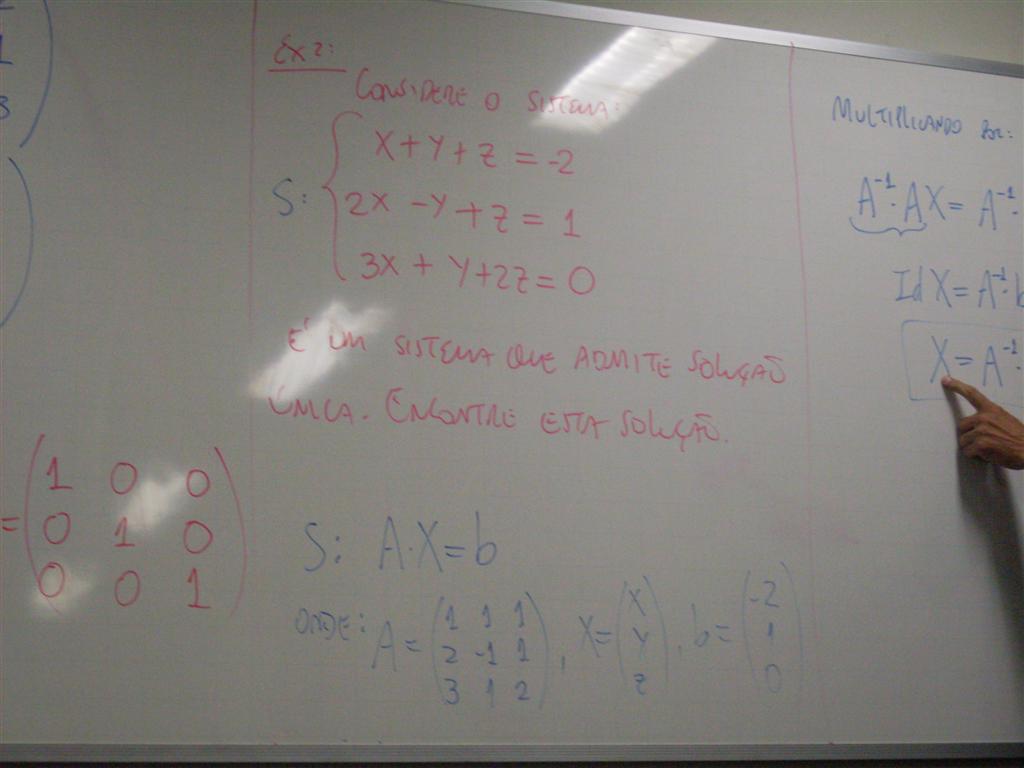 1
3
= ( 1 0 0
0 1 0
0 0 1 )
Ex 2:
CONSIDERE O SISTEMA:
S: { X+Y+Z=-2
2X-Y+Z=1
3X+Y+2Z=0
É UM SISTEMA QUE ADMITE SOLUÇÃO
ÚNICA. ENCONTRE ESTA SOLUÇÃO.
S: A·X=b
ONDE: A= ( 1 1 1 ), X= ( X ), b= ( -2 )
2 -1 1 Y 1
3 1 2 z 0
MULTIPLICANDO POR:
A⁻¹·AX=A⁻¹·
Id X=A⁻¹·b
X=A⁻¹·